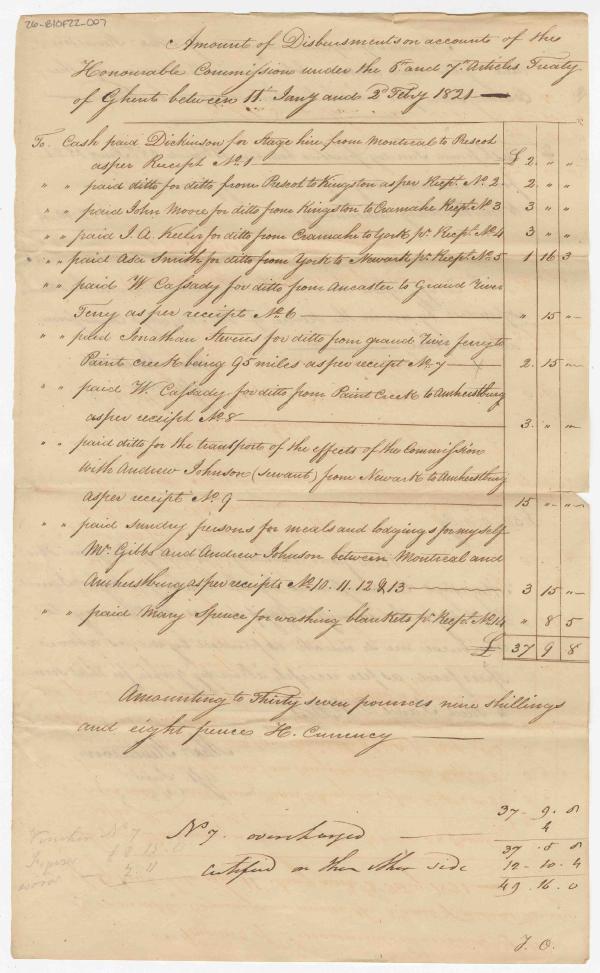 26-B10F22-007
Amount of Disbursments on accounts of the
Honourable Commission under the 6th and 7th Articles Treaty
of Ghent between 11th Jany and 2d Feby 1821 —
To Cash paid Dickinson for Stage hire from Montreal to Prescot
as per Receipt No. 1 — £ 2 " "
" " paid ditto for ditto from Prescot to Kingston as per Recpt. No. 2 2 " "
" " paid John Moore for ditto from Kingston to Cramahe Recpt. No. 3 3 " "
" " paid J. A. Keeler for ditto from Cramahe to York pr. Recpt. No. 4 3 " "
" " paid Asa Smith for ditto from York to Newark pr. Recpt. No. 5 1 16 3
" " paid W Cassady for ditto from Ancaster to Grand River
Ferry as per receipts No. 6 — " 15 "
" " paid Jonathan Stevens for ditto from grand River ferry to
Paint Creek being 95 miles as per receipt No. 7 — 2 15 "
" " paid W. Cassady for ditto from Paint Creek to Amherstburg
as per receipt No. 8 — 3 " "
" " paid ditto for the transport of the effects of the Commission
with Andrew Johnson (servant) from Newark to Amherstburg
as per receipt No. 9 — 15 " "
" " paid Sundry persons for meals and lodgings for myself
Mr. Gibbs and Andrew Johnson between Montreal and
Amherstburg as per receipts No. 10. 11. 12 & 13 — 3 15 "
" " paid Mary Spence for washing blankets pr. Recpt. No. 14 " 8 5
£ 37 9 8
Amounting to Thirty seven pounds nine shillings
and eight pence H. Currency —
37 - 9 - 8
No 7. overcharged — 4
37 . 5 8
certified on the other side 12 - 10 - 4
49 . 16 . 0
Voucher No 7
J. O.